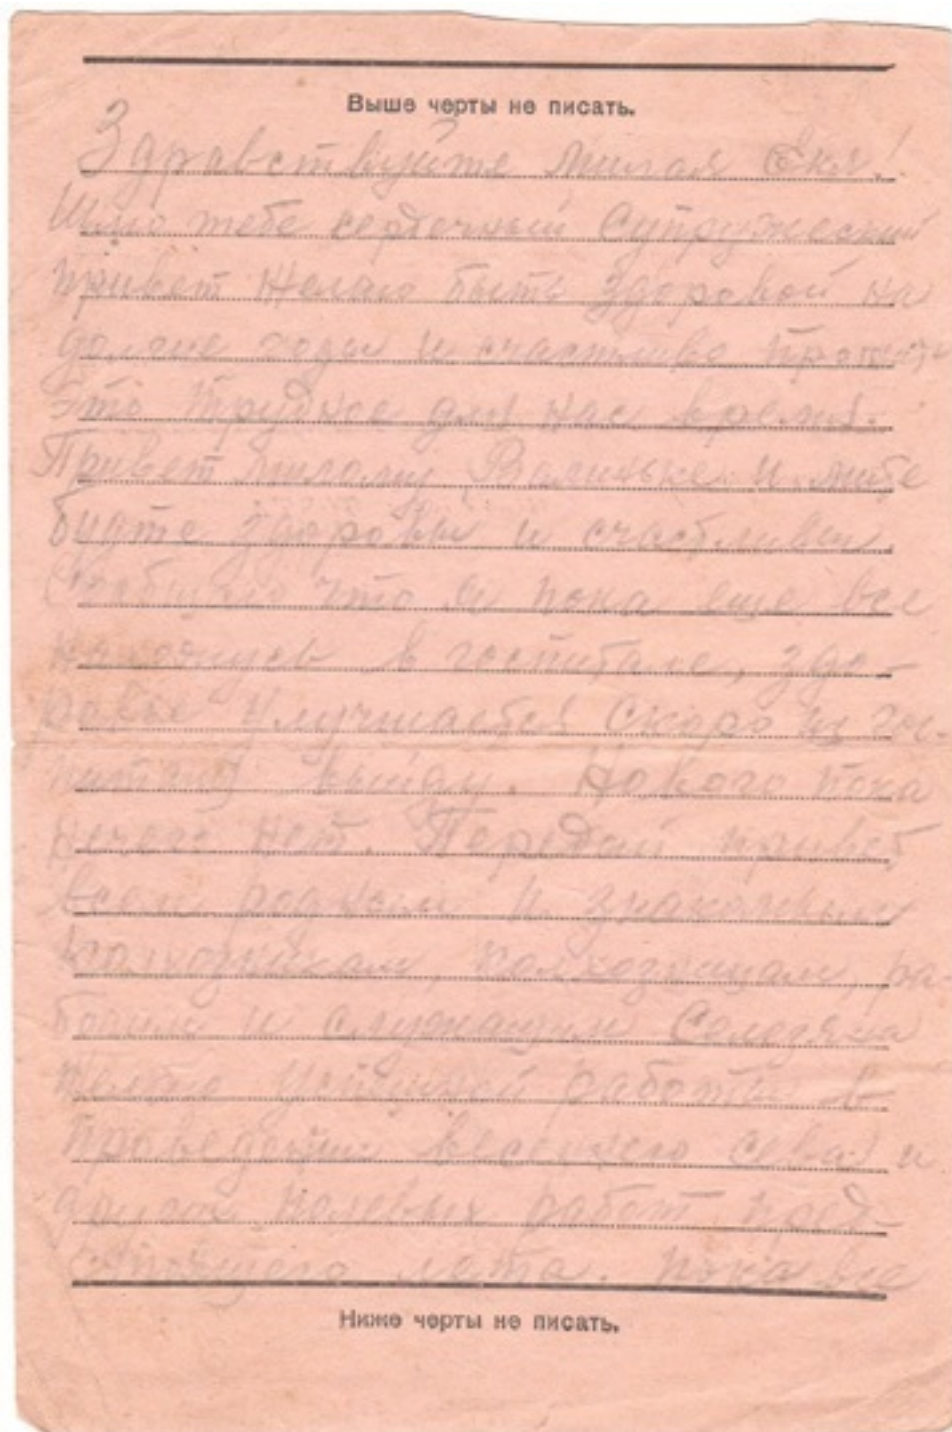 Выше черты не писать.
Здравствуйте милая Екя!
Шлю тебе сердечный Супружеский
привет Желаю быть здоровой на
долгие годы и счастливо
это трудное для нас время.
Привет милому Валиньке и
будте здоровы и счастливы.
Сообщаю что я пока еще все
нахожусь в госпитале, здо-
ровье улучшается Скоро из гос-
питаля выйду. Нового пока
нечего нет. Передай привет
всем родным и знакомым
колхозникам, колхозницам, ра
бочим и служащим
Желаю успешной работы в
проведении весеннего сева и
других полевых работ пред-
стоящего лета. Пока все
Ниже черты не писать.